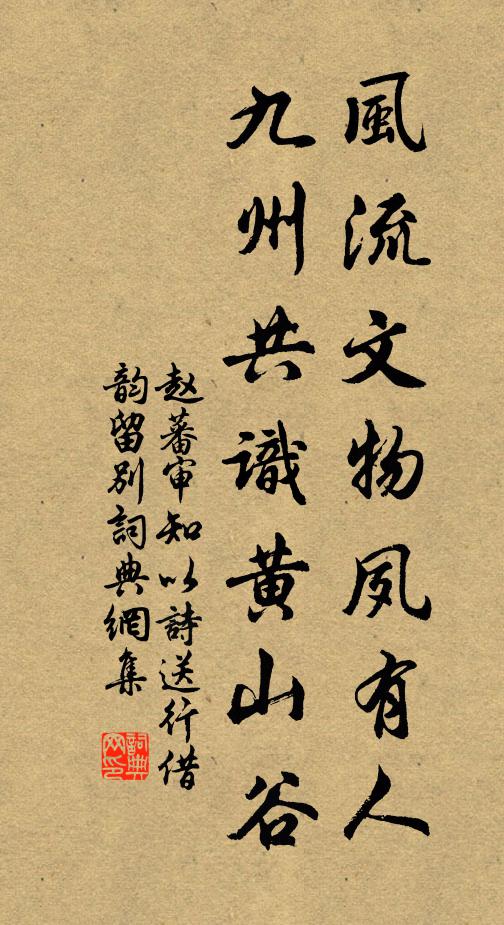 風流文物夙有人
九州共識黄山谷
赵蕃审知以詩送行借
韵留别詞典網集
詞典网印